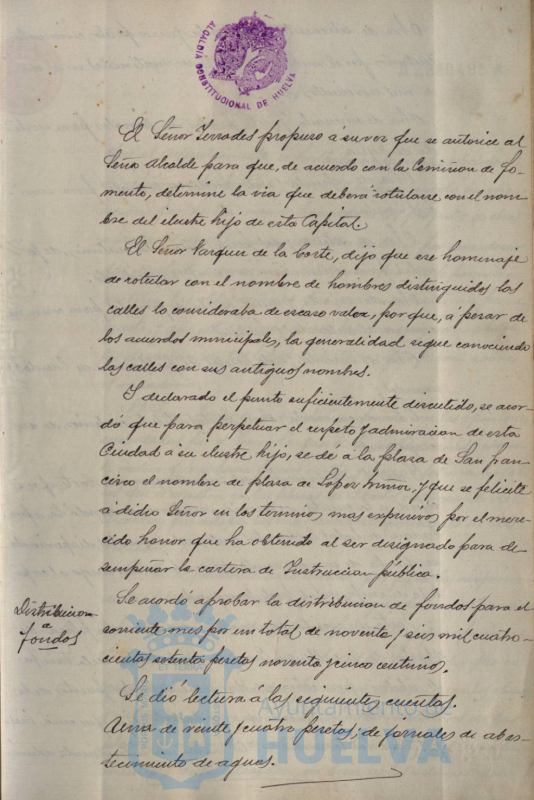 ALCALDIA CONSTITUCIONAL DE HUELVA
El Señor Terrades propuso á su vez que se autorice al
Señor Alcalde para que, de acuerdo con la Comision de fo-
mento, determine la via que deberá rotularse con el nom-
bre del ilustre hijo de esta Capital.
El Señor Vazquez de la Corte, dijo que ese homenaje
de rotular con el nombre de hombres distinguidos las
calles lo consideraba de escaso valor, por que, á pesar de
los acuerdos municipales, la generalidad sigue conociendo
las calles con sus antiguos nombres.
Y declarado el punto suficientemente discutido, se acor-
dó que para perpetuar el respeto y admiracion de esta
Ciudad á su ilustre hijo, se dé á la plaza de San Fran-
cisco el nombre de plaza de Lopez Muñoz, y que se felicite
á dicho Señor en los terminos mas expresivos por el mere-
cido honor que ha obtenido al ser designado para de
sempeñar la cartera de Instruccion pública.
Distribucion
de
fondos
Se acordó aprobar la distribucion de fondos para el
corriente mes por un total de noventa y seis mil cuatro-
cientas setenta pesetas noventa y cinco centimos.
Se dió lectura á las siguientes cuentas.
de veinte y cuatro pesetas, de jornales de abas-
tecimiento de aguas.
Ayuntamiento de
HUELVA